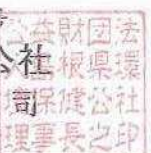 社
司
公益財団法
人島根県環
境保健公社
理事長之印